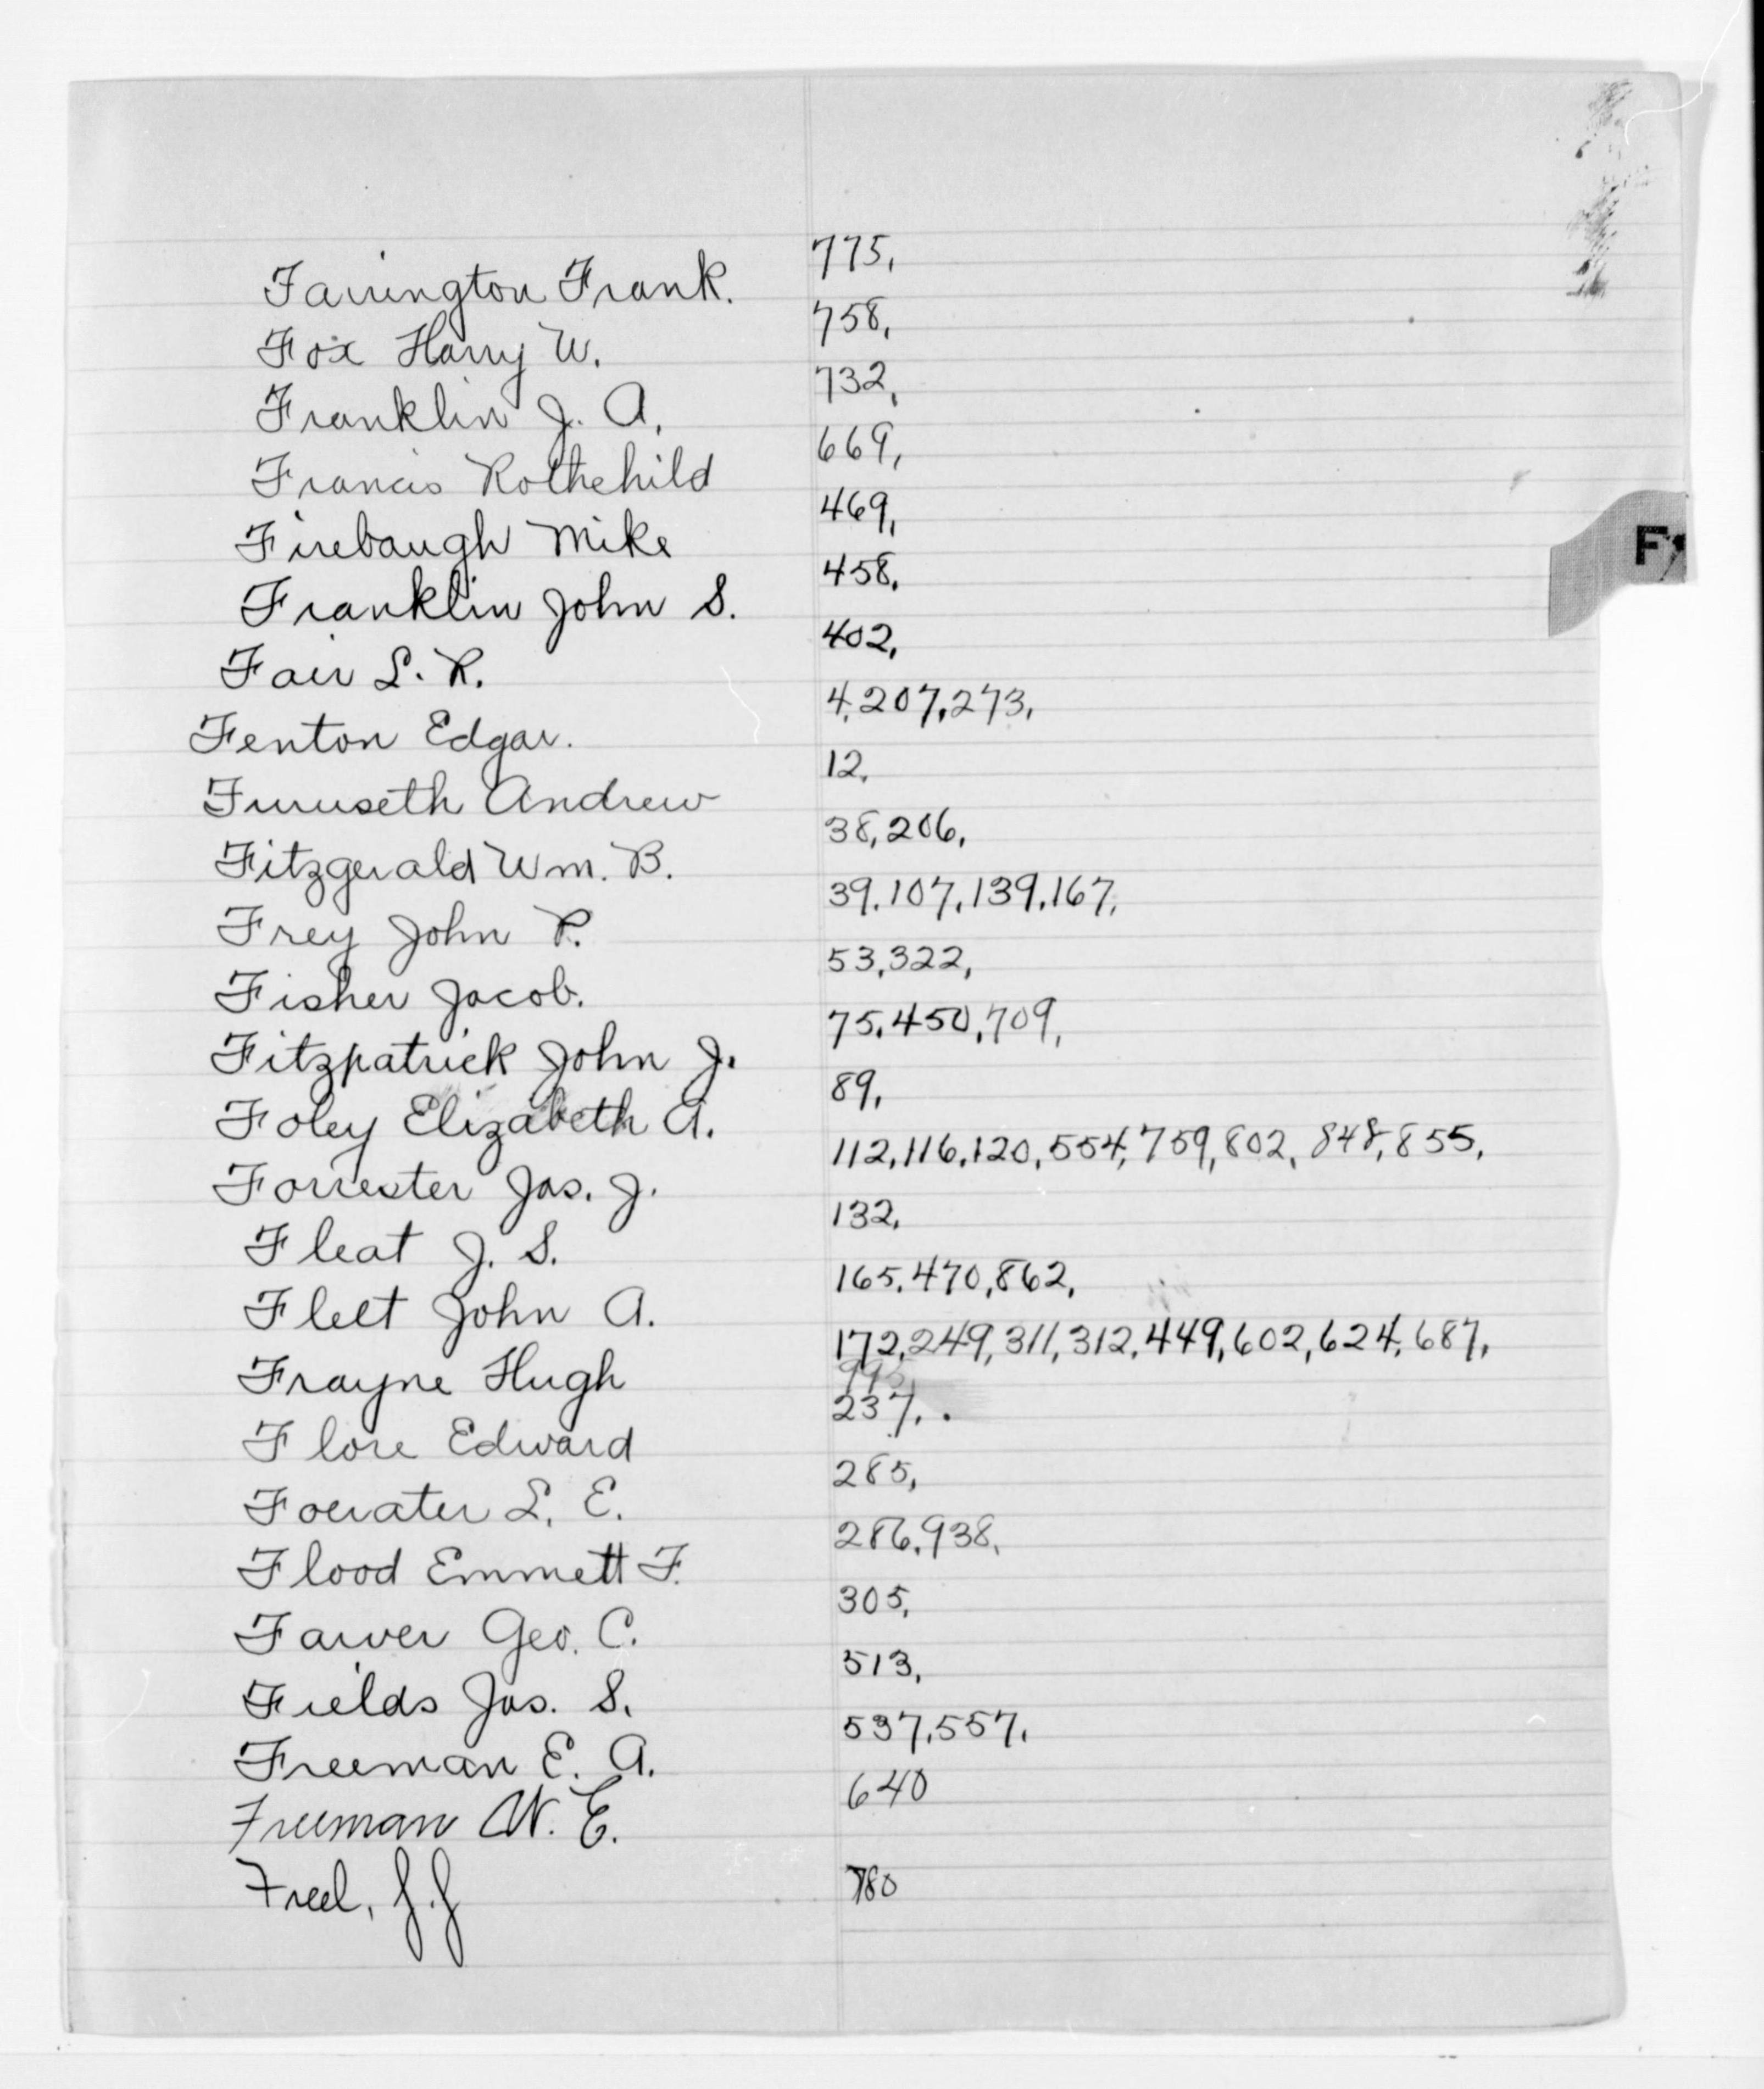 Farrington Frank. 775,
Fox Harry W. 758,
Franklin J. A. 732,
Francis Rothchild 669,
Firebaugh Mike 469,
Franklin John S. 458,
Fair L. R. 402,
Fenton Edgar. 4,207,273,
Furuseth Andrew 12,
Fitzgerald Wm. B. 38,206,
Frey John P. 39,107,139,167,
Fisher Jacob. 53,322,
Fitzpatrick John J. 75,450,709,
Foley Elizabeth A. 89,
Forrester Jas. J. 112,116,120,554,759,802,848,855,
Fleat J. S. 132,
Flett John A. 165,470,862,
Frayne Hugh 172,249,311,312,449,602,624,687,
Flore Edward 237,
L. E. 285,
Flood Emmett F. 286,938,
Farver Geo. C. 305,
Fields Jas. S. 513,
Freeman E. A. 537,557,
Freeman W. E. 640
Freel, J.J 780
F